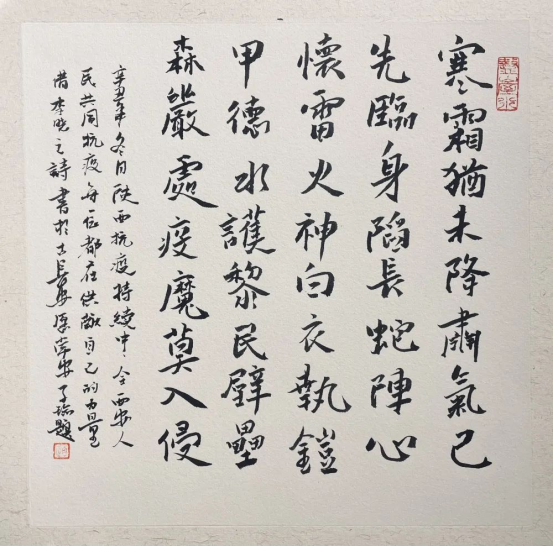 寒霜猶未降肅氣已
先臨身陷長蛇陣心
懷雷火神白衣執鎧
甲德水護黎民壁壘
森嚴處疫魔莫入侵
辛丑年冬日陕西抗疫持續中全西安人
民共同抗疫每一位都在供献自己的力量
借李晓之詩書於古長安題